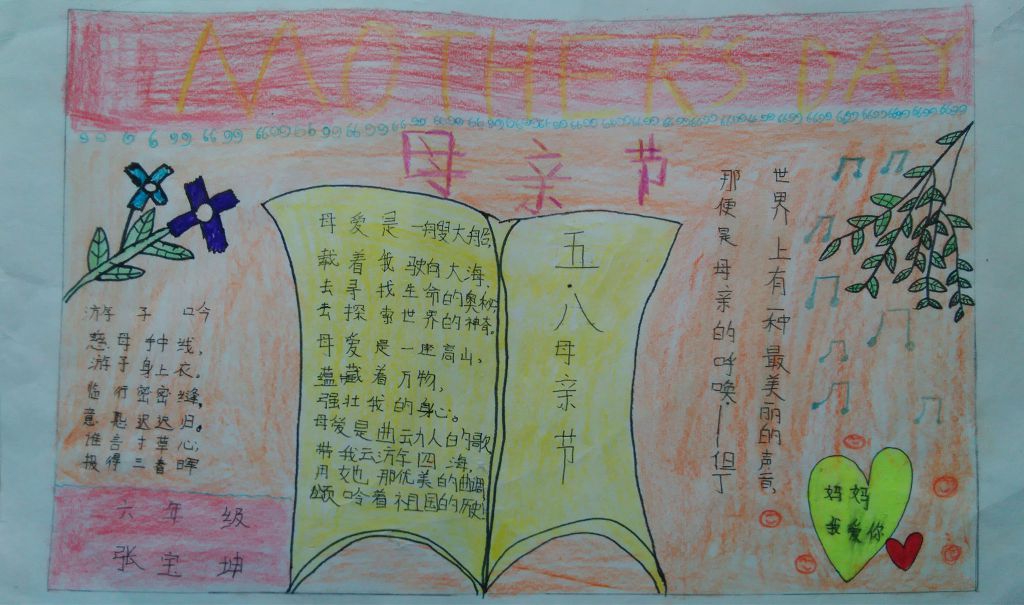 MOTHER'S DAY
母亲节
游子吟
慈母手中线，
游子身上衣。
临行密密缝，
意恐迟迟归。
谁言寸草心，
报得三春晖
六年级
张宝坤
母爱是一艘大船，
载着我驶向大海，
去寻找生命的奥秘，
去探索世界的神奇。
母爱是一座高山，
蕴藏着万物，
强壮我的身心。
母爱是曲动人的歌
带我云游四海，
用她那优美的曲调
颂吟着祖国的历史
五·八母亲节
世界上有一种最美丽的声音，
那便是母亲的呼唤.——但丁
妈妈
我爱你